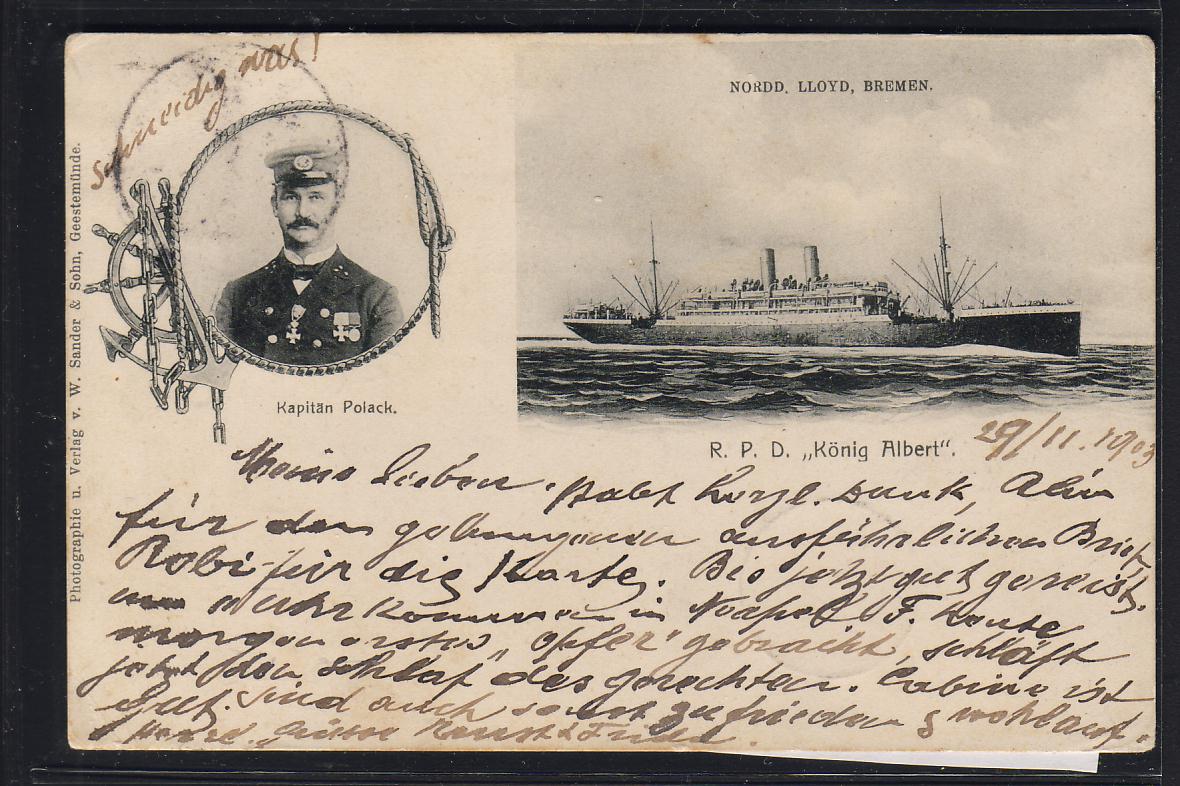 schneidig was!
NORDD. LLOYD, BREMEN.
Photographie u. Verlag v. W. Sander & Sohn, Geestemünde.
Kapitän Polack.
R. P. D. „König Albert“.
29/11. 1903
Meine Lieben. Habt herzl. Dank,
für den gelungenen ausführlichen Brief
Robi für die Karte. Bis jetzt gut gereist.
Uhr kommen in Neapel F. heute
morgen erstes „Opfer“ gebracht, schläft
jetzt den Schlaf des gerechten. Cabine ist
gut. Sind auch sonst zufrieden & wohlauf.